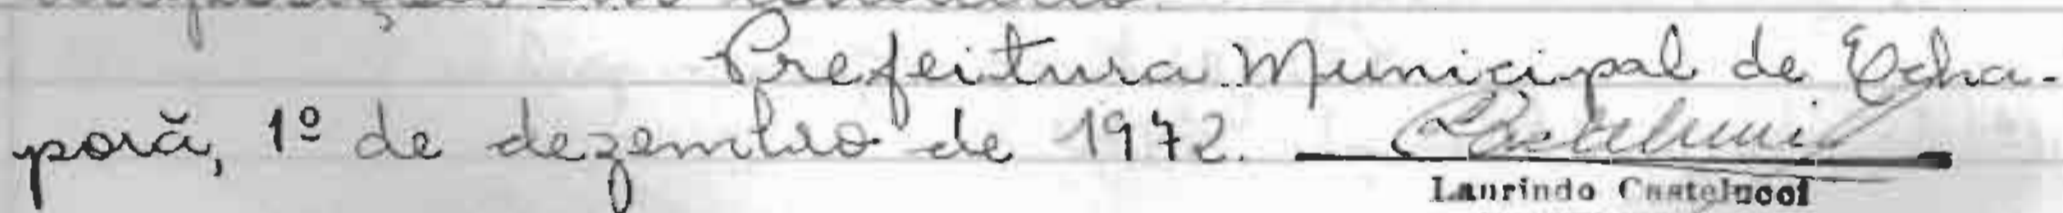 Prefeitura Municipal de Echa-
porã, 1º de dezembro de 1972.
Laurindo Castelucci